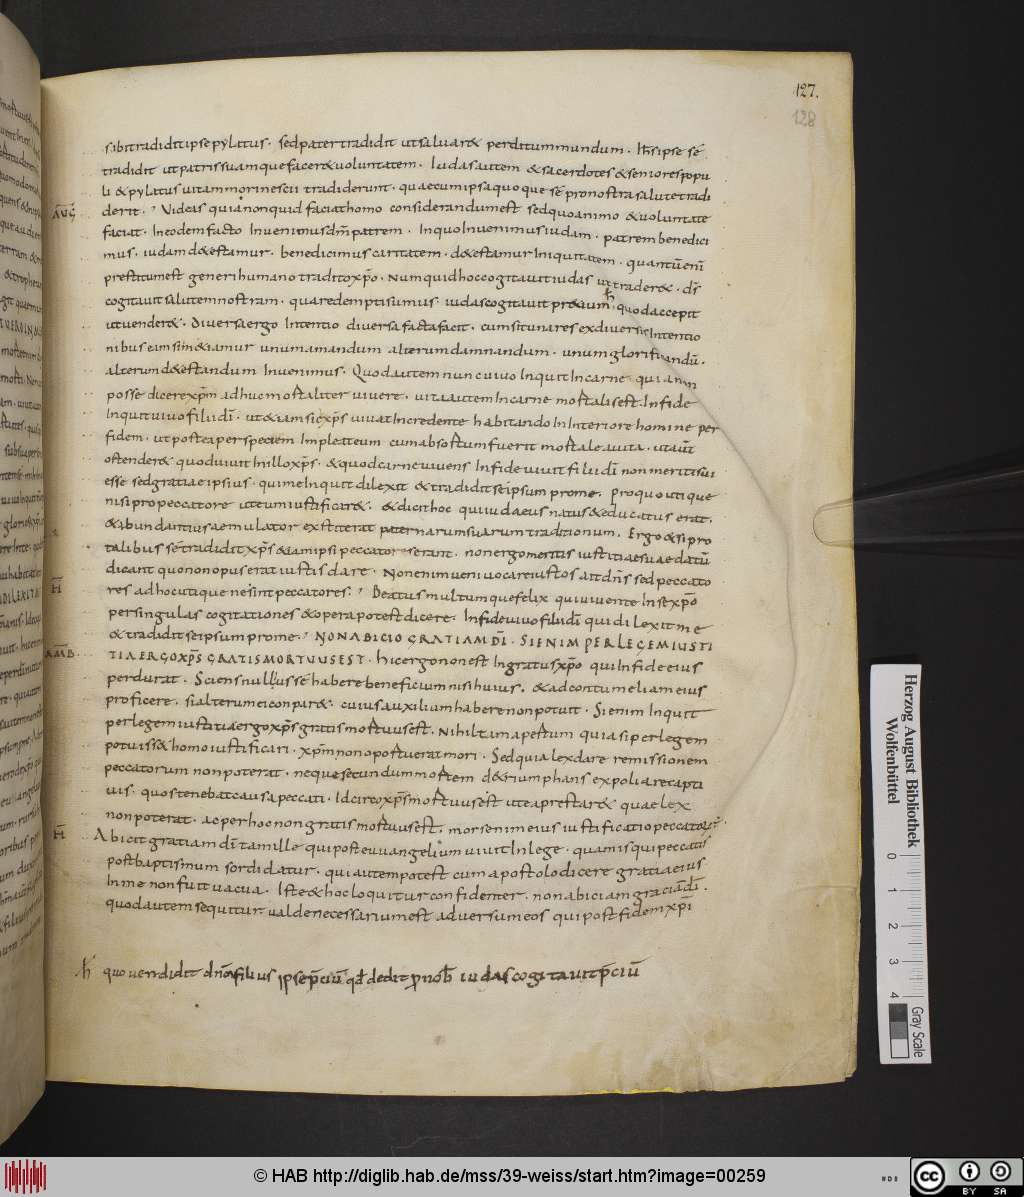 127.
128
sibi tradidit ipse pylatus · sed pater tradidit ut saluar& perditum mundum · Ihs ipse sē
tradidit ut patris suamque facer& uoluntatem · Iudas autem & sacerdotes & seniores popu
li & pylatus uitam morinescii tradiderunt · quaecum ipsa quoque sē pro nostra salute tradi
AUG̅ derit · Uideas quia non quid faciat homo considerandum est sed quo animo & uoluntate
faciat · In eodem facto Inuenimus dm̅ patrem · In quo Inuenimus iudam · patrem benedici
mus · iudam d&estamur · benedicimus caritatem · d&estamur Iniquitatem · quantū enī
prestitum est generi humano tradito xp̅o · Numquid hoc cogitauit iudas ut trader& · ds̅
cogitauit salutem nostram · qua redempti sumus · iudas cogitauit pr&ium · quod accepit
ut uender& · Diuersa ergo Intentio diuersa facta facit · cum sit una res ex diuersis Intentio
nibus eam si m&iamur unum amandum alterum damnandum · unum glorificandū ·
alterum d&estandum Inuenimus · Quod autem nunc uiuo Inquit In carne quia
posse dicere xp̅m adhuc mortaliter uiuere · uita autem In carne mortalis est · In fide
Inquit uiuo filii di̅ · ut &iam sic xp̅s uiuat In credente habitando In Interiore homine per
fidem · ut postea per speciem Impleat eum cum absortum fuerit mortale a uita · ut aut̅
ostender& quod uiuit In illo xp̅s · & quod carne uiuens In fide uiuit filii di̅ non meriti sui
esse sed gratiae ipsius · qui me Inquit dilexit & tradidit se ipsum pro me · Pro quo utique
nisi pro peccatore ut eum iustificar& · & dicit hoc qui iudaeus natus & educatus erat ·
& abundantius aemulator extiterat paternarum suarum traditionum · Ergo & si pro
talibus se tradidit xp̅s &iam ipsi peccatores erant · non ergo meritis iustitiae suae datū
dicant quod non opus erat iustis dare · Non enim ueni uocare iustos ait dn̅s sed peccato
H̅ res ad hoc utique ne sint peccatores · Beatus multumque felix qui uiuente In se xp̅o
per singulas cogitationes & opera potest dicere · In fide uiuo filii di̅ qui dilexit me
& tradidit se ipsum pro me · NON ABICIO GRATIAM DI̅ · SI ENIM PER LEGEM IUSTI
AMB̅ TIA ERGO XP̅S GRATIS MORTUUS EST · hic ergo non est Ingratus xp̅o qui In fide eius
perdurat · Sciens nullius se habere beneficium nisi huius · & ad contumeliam eius
proficere · si alterum ei conpar& · cuius auxilium habere non potuit · Si enim Inquit
per legem iustitia ergo xp̅s gratis mortuus est · Nihil tam apertum quia si per legem
potuiss& homo iustificari · xp̅m non oportuerat mori · Sed quia lex dare remissionem
peccatorum non poterat · neque secundum mortem d& triumphans expoliare capti
uis · quos tenebat causa peccati · Idcirco xp̅s mortuus est ut ea prestar& quae lex
non poterat · ac per hoc non gratis mortuus est · mors enim eius iustificatio peccatorum ·
H̅ Abicit gratiam di̅ tam ille qui post euuangelium uiuit In lege · quam is qui peccatis
post baptismum sordidatur · qui autem potest cum apostolo dicere gratia eius
In me non fuit uacua · Iste & hoc loquitur confidenter · non abiciam graciā di̅ ·
quod autem sequitur ualde necessarium est aduersum eos qui post fidem xp̅i
h̅ quo uendidit dn̅m filius ipse p̅ciū qd̅ dedit p nob̅ iudas cogitauit p̅ciū
Herzog August Bibliothek
Wolfenbüttel
0 1 2 3 4
Gray Scale
© HAB http://diglib.hab.de/mss/39-weiss/start.htm?image=00259
cc BY SA